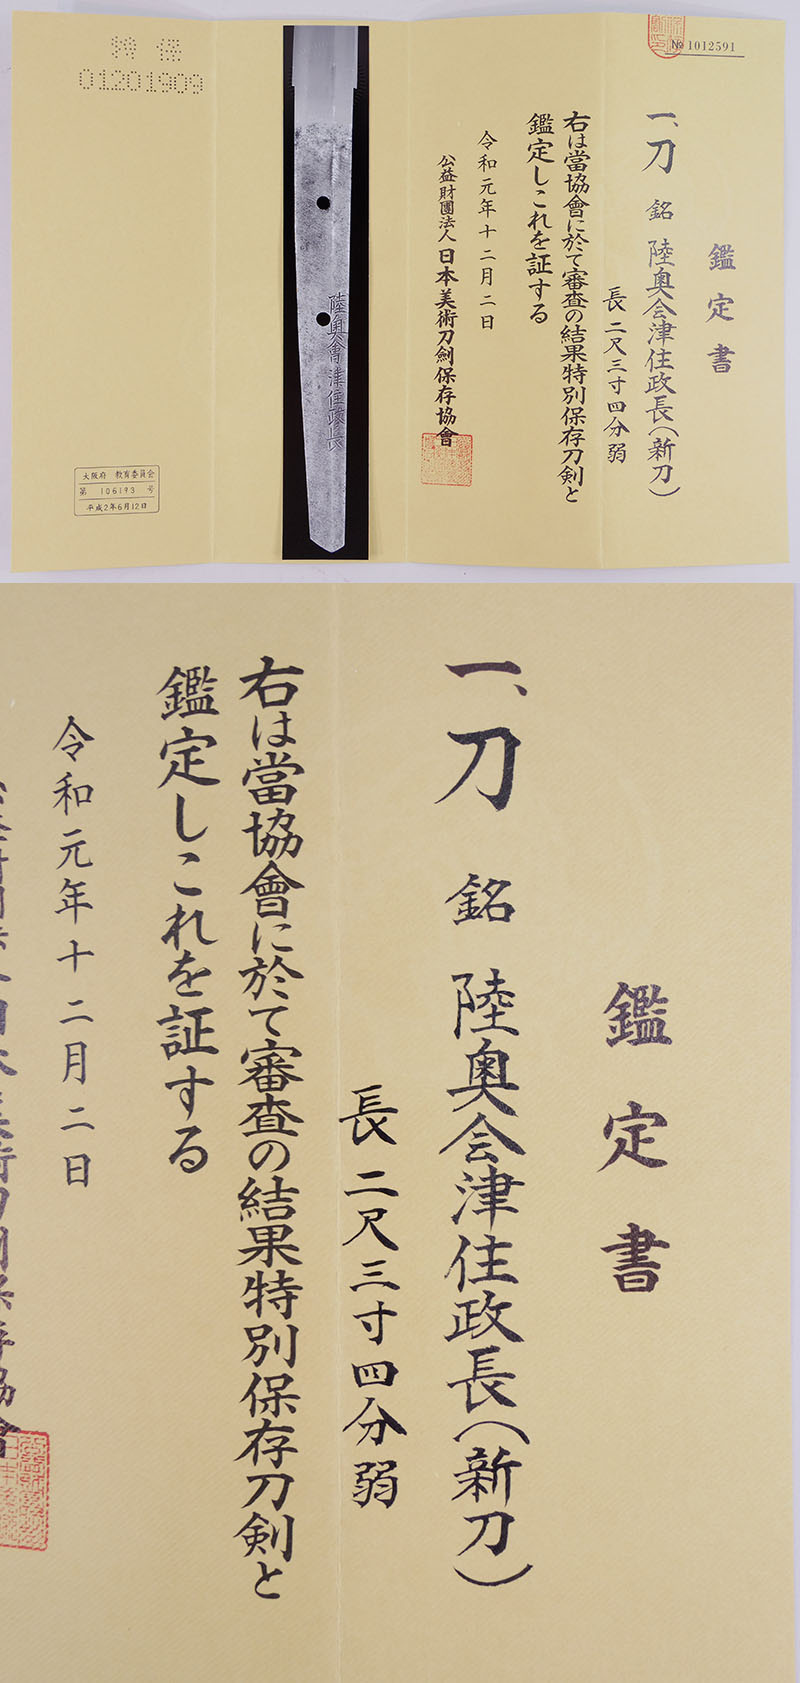 № 1012591
鑑定書
一、刀 銘 陸奥会津住政長(新刀)
長二尺三寸四分弱
右は當協會に於て審査の結果特別保存刀剣と
鑑定しこれを証する
令和元年十二月二日
公益財團法人日本美術刀劍保存協會
陸奥會津住政長
特保
01201909
大阪府 教育委員会
第 106193 号
平成2年6月12日
鑑定書
一、刀 銘 陸奥会津住政長(新刀)
長二尺三寸四分弱
右は當協會に於て審査の結果特別保存刀剣と
鑑定しこれを証する
令和元年十二月二日